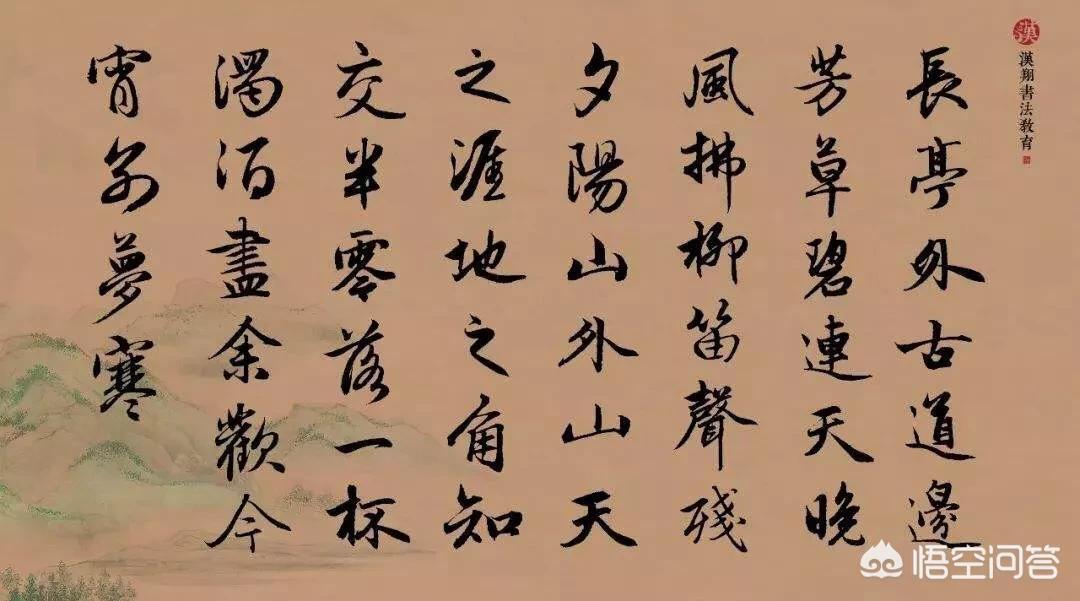 長亭外古道邊
芳草碧連天晚
風拂柳笛聲殘
夕陽山外山天
之涯地之角知
交半零落一杯
濁酒盡余歡今
宵别夢寒
漢
漢翔書法教育
悟空问答